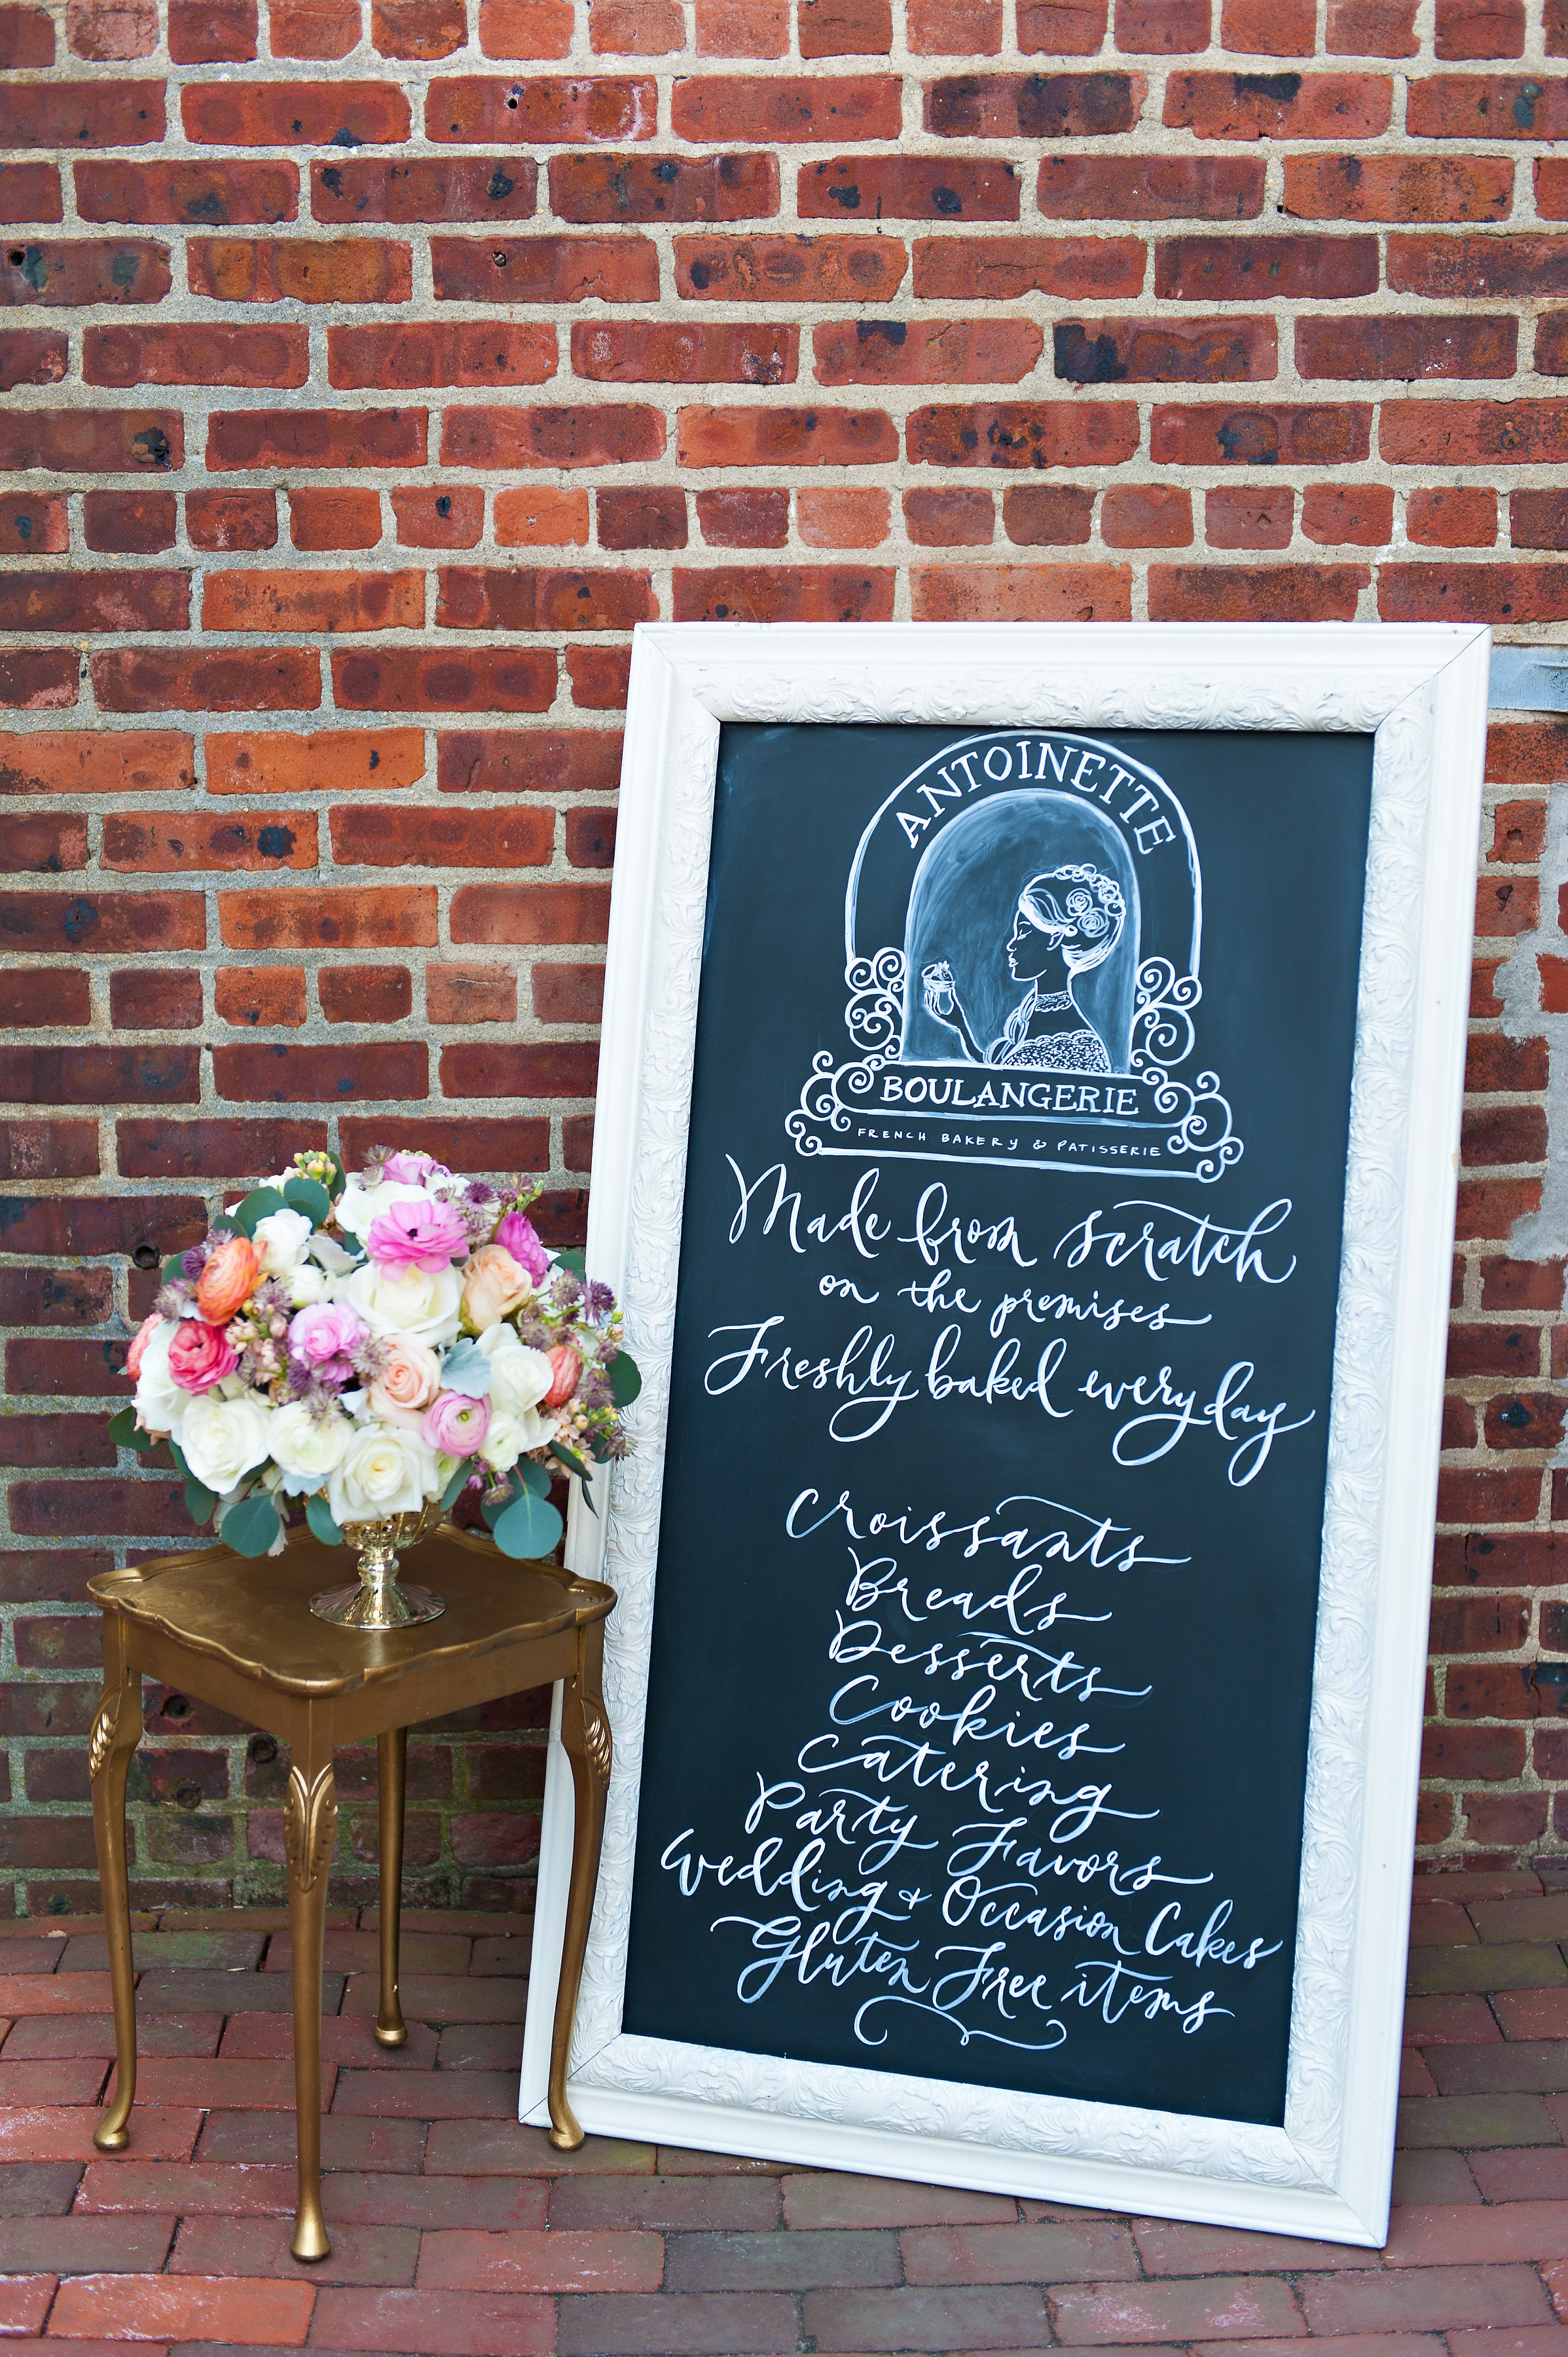 ANTOINETTE
BOULANGERIE
FRENCH BAKERY & PATISSERIE
Made from scratch
on the premises
Freshly baked everyday
Croissants
Breads
Desserts
Cookies
Catering
Party Favors
Wedding + Occasion Cakes
Gluten Free items